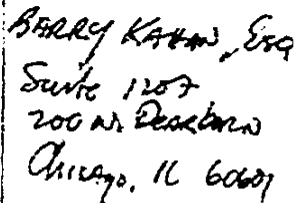 BARRY KAHAN, ESQ
Suite 1207
200 N. DEARBORN
Chicago, IL 60601